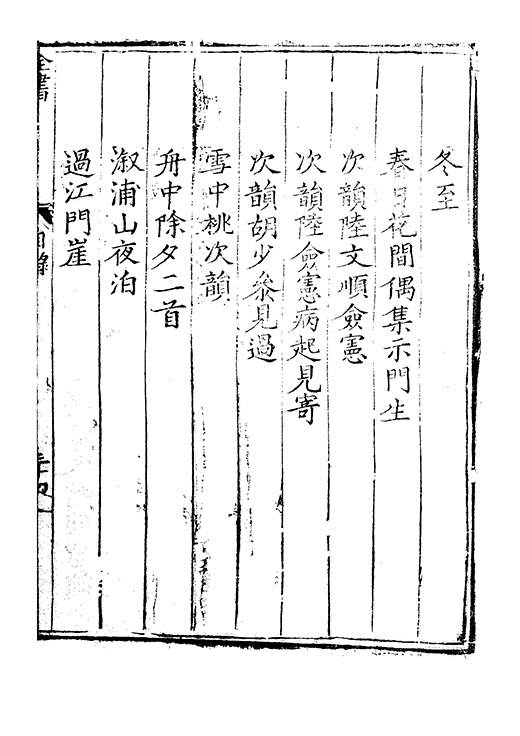 冬至
春日花間偶集示門生
次韻陸文順僉憲
次韻陸僉憲病起見寄
次韻胡少參見過
雪中桃次韻
舟中除夕二首
溆浦山夜泊
過江門崖
全書
目錄